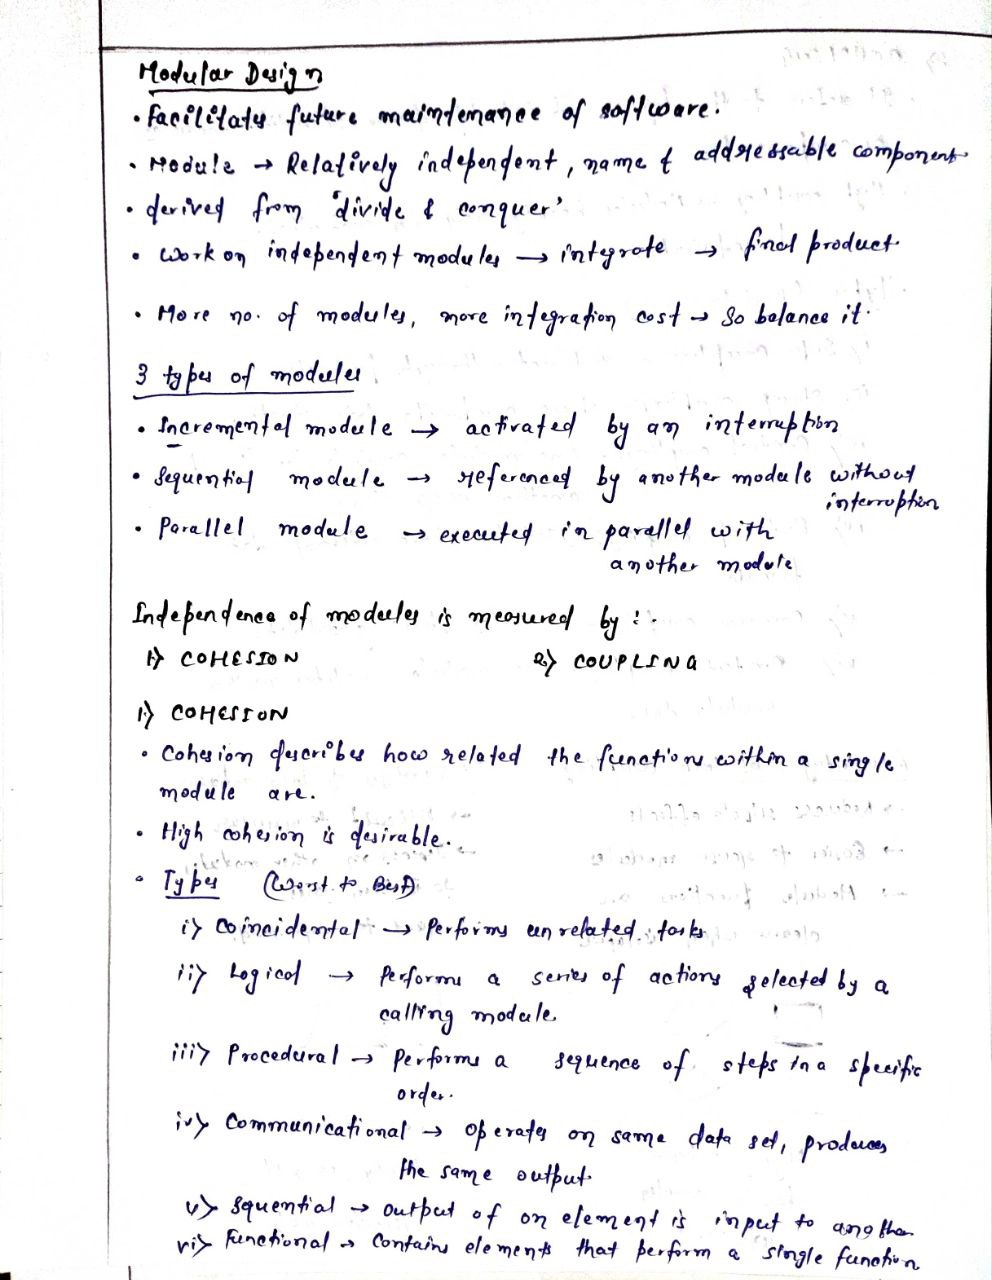 Modular Design
• Facilitates future maintenance of software.
• Module → Relatively independent, name & addressable component
• derived from 'divide & conquer'
• Work on independent modules → integrate → final product
• More no. of modules, more integration cost → So balance it.
3 types of modules
• Incremental module → activated by an interruption
• Sequential module → referenced by another module without
interruption
• Parallel module → executed in parallel with
another module
Independence of modules is measured by :-
1) COHESION 2) COUPLING
1) COHESION
• Cohesion describes how related the functions within a single
module are.
• High cohesion is desirable.
• Types (Worst to Best)
i) Coincidental → Performs unrelated tasks
ii) Logical → Performs a series of actions selected by a
calling module.
iii) Procedural → Performs a sequence of steps in a specific
order.
iv) Communicational → operates on same data set, produces
the same output.
v) Squential → output of on element is input to another
vi) Functional → Contains elements that perform a single function